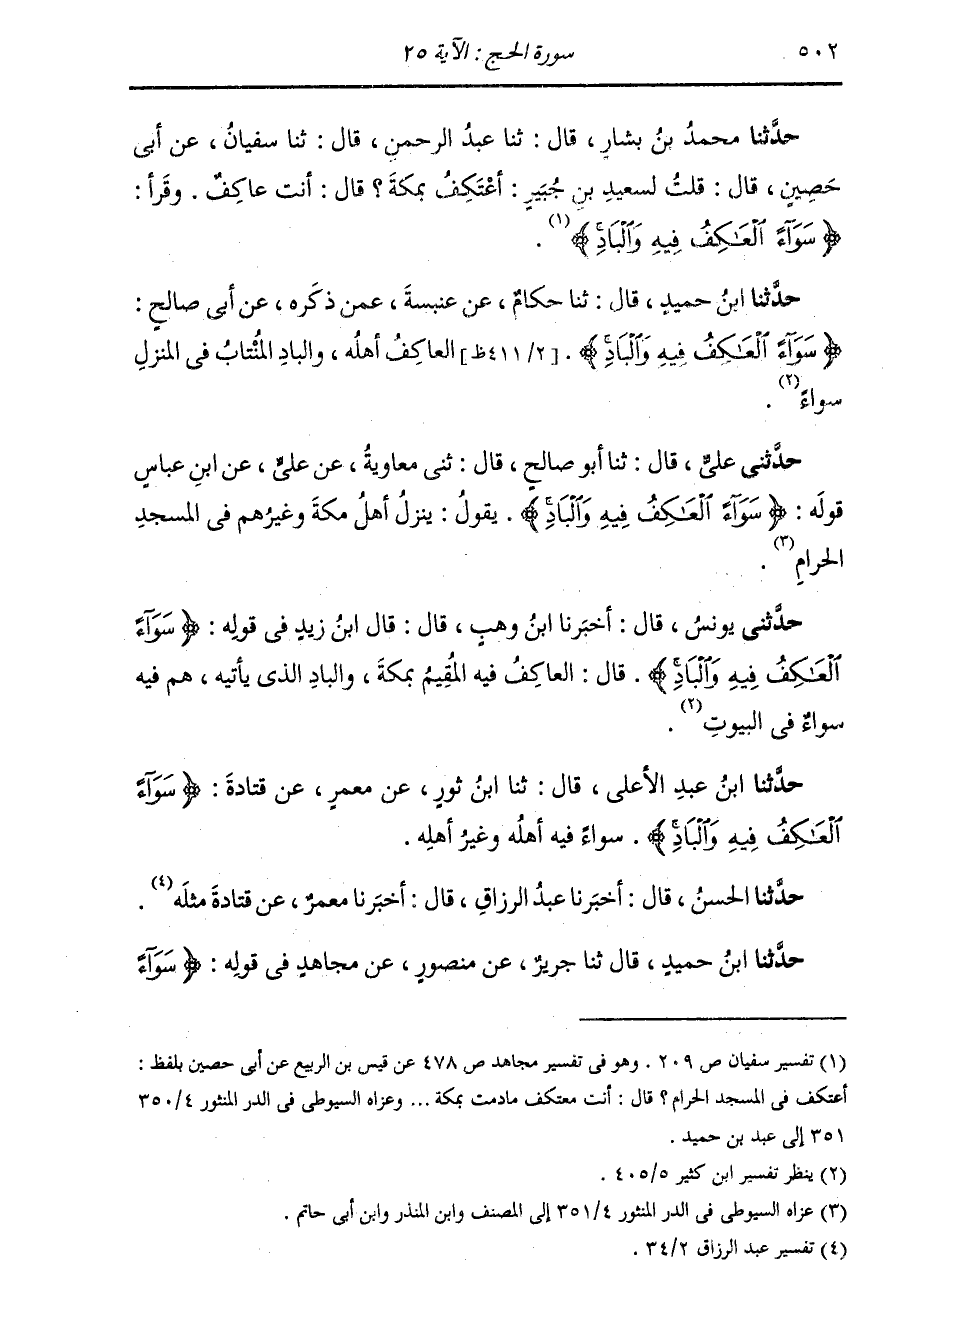 ٥٠٢ سورة الحج : الآية ٢٥
حدَّثنا محمدُ بنُ بشارٍ ، قال : ثنا عبدُ الرحمنِ ، قال : ثنا سفيانُ ، عن أبى
حَصِينٍ ، قال : قلتُ لسعيدِ بنِ جُبَيرٍ : أعْتَكِفُ بمكةَ ؟ قال : أنت عاكِفٌ . وقرَأ :
﴿ سَوَآءً ٱلْعَـٰكِفُ فِيهِ وَٱلْبَادِۚ ﴾(١) .
حدَّثنا ابنُ حميدٍ ، قال : ثنا حكامٌ ، عن عنبسةَ ، عمن ذكَره ، عن أبى صالحٍ :
﴿ سَوَآءً ٱلْعَـٰكِفُ فِيهِ وَٱلْبَادِۚ ﴾ . [٤١١/٢ظ] العاكِفُ أهلُه ، والبادِ المُنْتابُ فى المنزلِ
سواءً(٢) .
حدَّثنى علىٌّ ، قال : ثنا أبو صالحٍ ، قال : ثنى معاويةُ ، عن علىٍّ ، عن ابنِ عباسٍ
قولَه : ﴿ سَوَآءً ٱلْعَـٰكِفُ فِيهِ وَٱلْبَادِۚ ﴾ . يقولُ : ينزلُ أهلُ مكةَ وغيرُهم فى المسجدِ
الحرامِ(٣) .
حدَّثنى يونسُ ، قال : أخبَرنا ابنُ وهبٍ ، قال : قال ابنُ زيدٍ فى قولِه : ﴿ سَوَآءً
ٱلْعَـٰكِفُ فِيهِ وَٱلْبَادِۚ ﴾ . قال : العاكِفُ فيه المُقِيمُ بمكةَ ، والبادِ الذى يأتيه ، هم فيه
سواءٌ فى البيوتِ(٢) .
حدَّثنا ابنُ عبدِ الأعلى ، قال : ثنا ابنُ ثورٍ ، عن معمرٍ ، عن قتادةَ : ﴿ سَوَآءً
ٱلْعَـٰكِفُ فِيهِ وَٱلْبَادِۚ ﴾ . سواءً فيه أهلُه وغيرُ أهلِه .
حدَّثنا الحسنُ ، قال : أخبَرنا عبدُ الرزاقِ ، قال : أخبَرنا معمرٌ ، عن قتادةَ مثلَه(٤) .
حدَّثنا ابنُ حميدٍ ، قال ثنا جريرٌ ، عن منصورٍ ، عن مجاهدٍ فى قولِه : ﴿ سَوَآءً
(١) تفسير سفيان ص ٢٠٩ . وهو فى تفسير مجاهد ص ٤٧٨ عن قيس بن الربيع عن أبى حصين بلفظ :
أعتكف فى المسجد الحرام ؟ قال : أنت معتكف مادمت بمكة ... وعزاه السيوطى فى الدر المنثور ٣٥٠/٤
٣٥١ إلى عبد بن حميد .
(٢) ينظر تفسير ابن كثير ٤٠٥/٥ .
(٣) عزاه السيوطى فى الدر المنثور ٣٥١/٤ إلى المصنف وابن المنذر وابن أبى حاتم .
(٤) تفسير عبد الرزاق ٣٤/٢ .